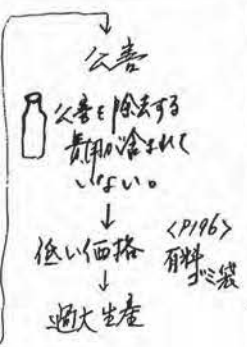 公害
公害を除去する
費用が含まれて
いない。
低い価格
<P196>
有料
ゴミ袋
過大生産